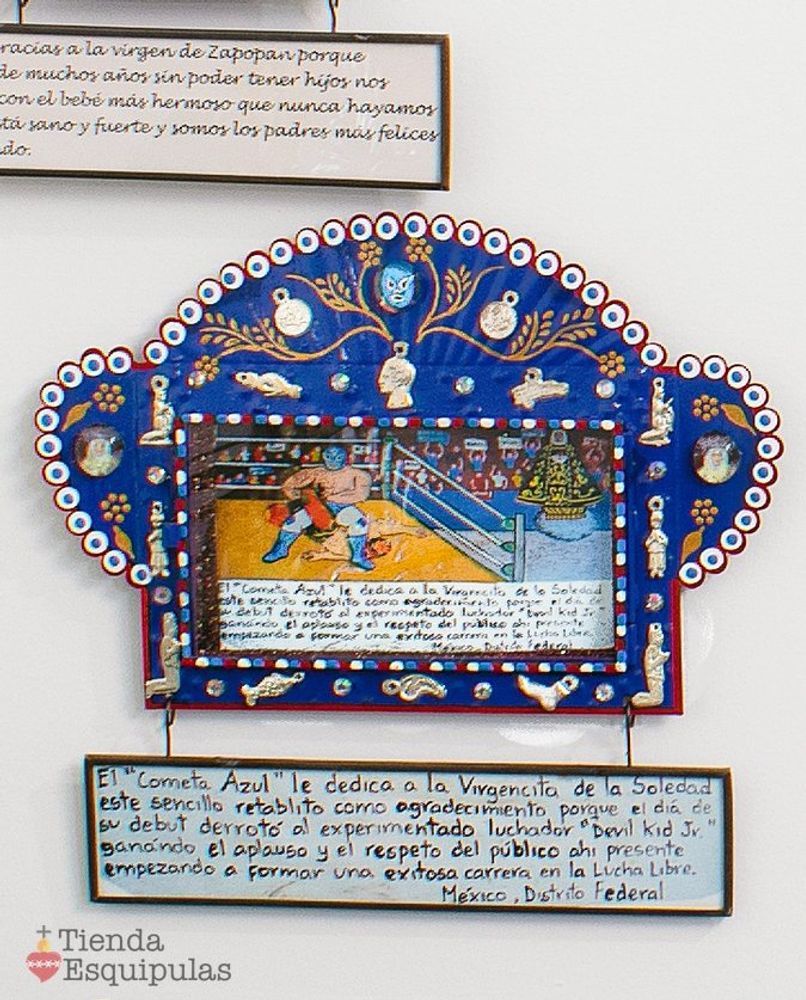 racias a la virgen de Zapopan porque
de muchos años sin poder tener hijos nos
con el bebé más hermoso que nunca hayamos
stá sano y fuerte y somos los padres más felices
ndo.
El "Cometa Azul" le dedica a la Virgencita de la Soledad
este sencillo retablito como agradecimiento porque el día de
su debut derrotó al experimentado luchador "Devil Kid Jr."
ganándo el aplauso y el respeto del público ahi presente
empezando a formar una exitosa carrera en la Lucha Libre.
México, Distrito Federal
El "Cometa Azul" le dedica a la Virgencita de la Soledad
este sencillo retablito como agradecimiento porque el día de
su debut derrotó al experimentado luchador "Devil Kid Jr."
ganándo el aplauso y el respeto del público ahi presente
empezando a formar una exitosa carrera en la Lucha Libre.
México, Distrito Federal
Tienda
Esquipulas